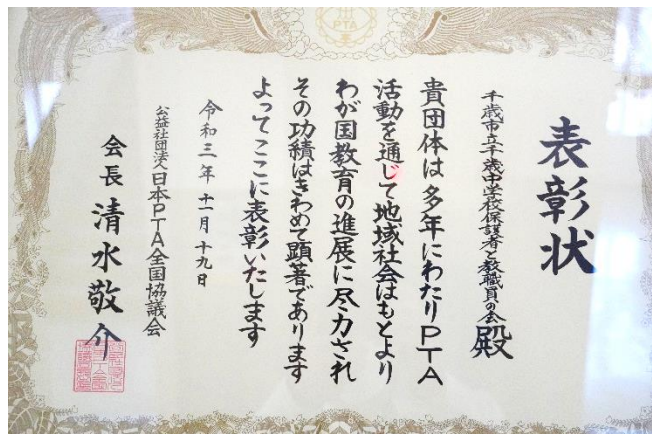 PTA
表彰状
千歳市立千歳中学校保護者と教職員の会殿
貴団体は多年にわたりPTA
活動を通じて地域社会はもとより
わが国教育の進展に尽力され
その功績はきわめて顕著であります
よってここに表彰いたします
令和三年十一月十九日
公益社団法人日本PTA全国協議会
会長 清水敬介